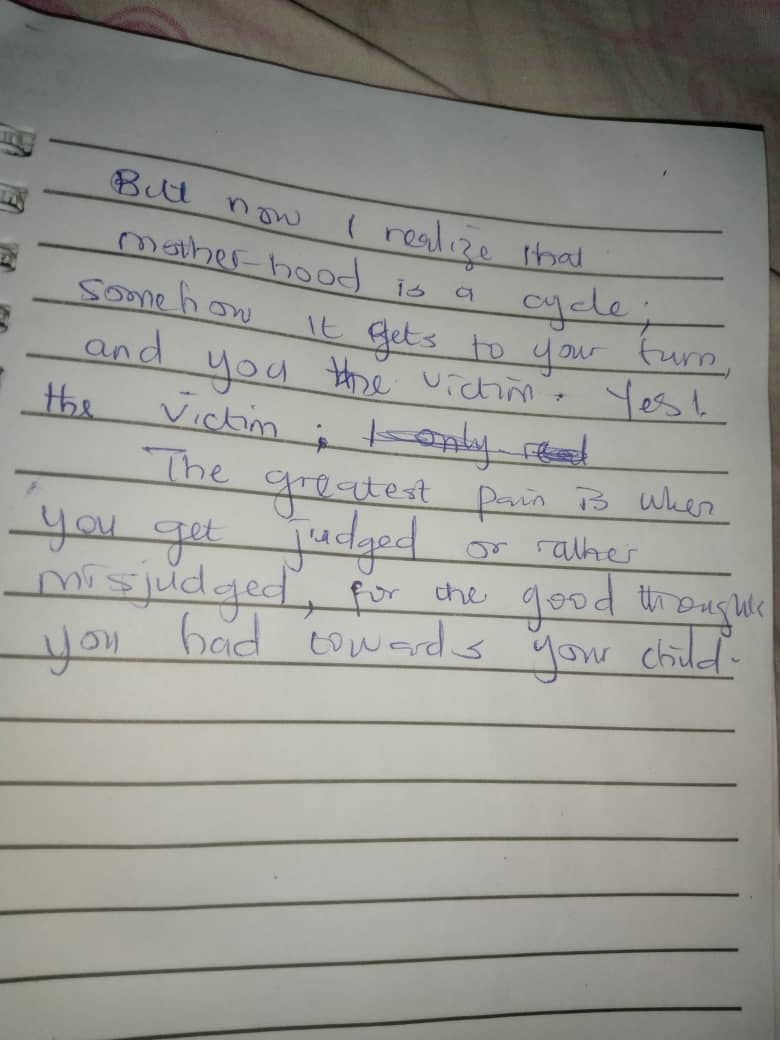 But now I realize that
mother-hood is a cycle;
somehow it gets to your turn,
and you the victim. Yes!
the victim; I only read
The greatest pain is when
you get judged or rather
misjudged, for the good thoughts
you had towards your child.